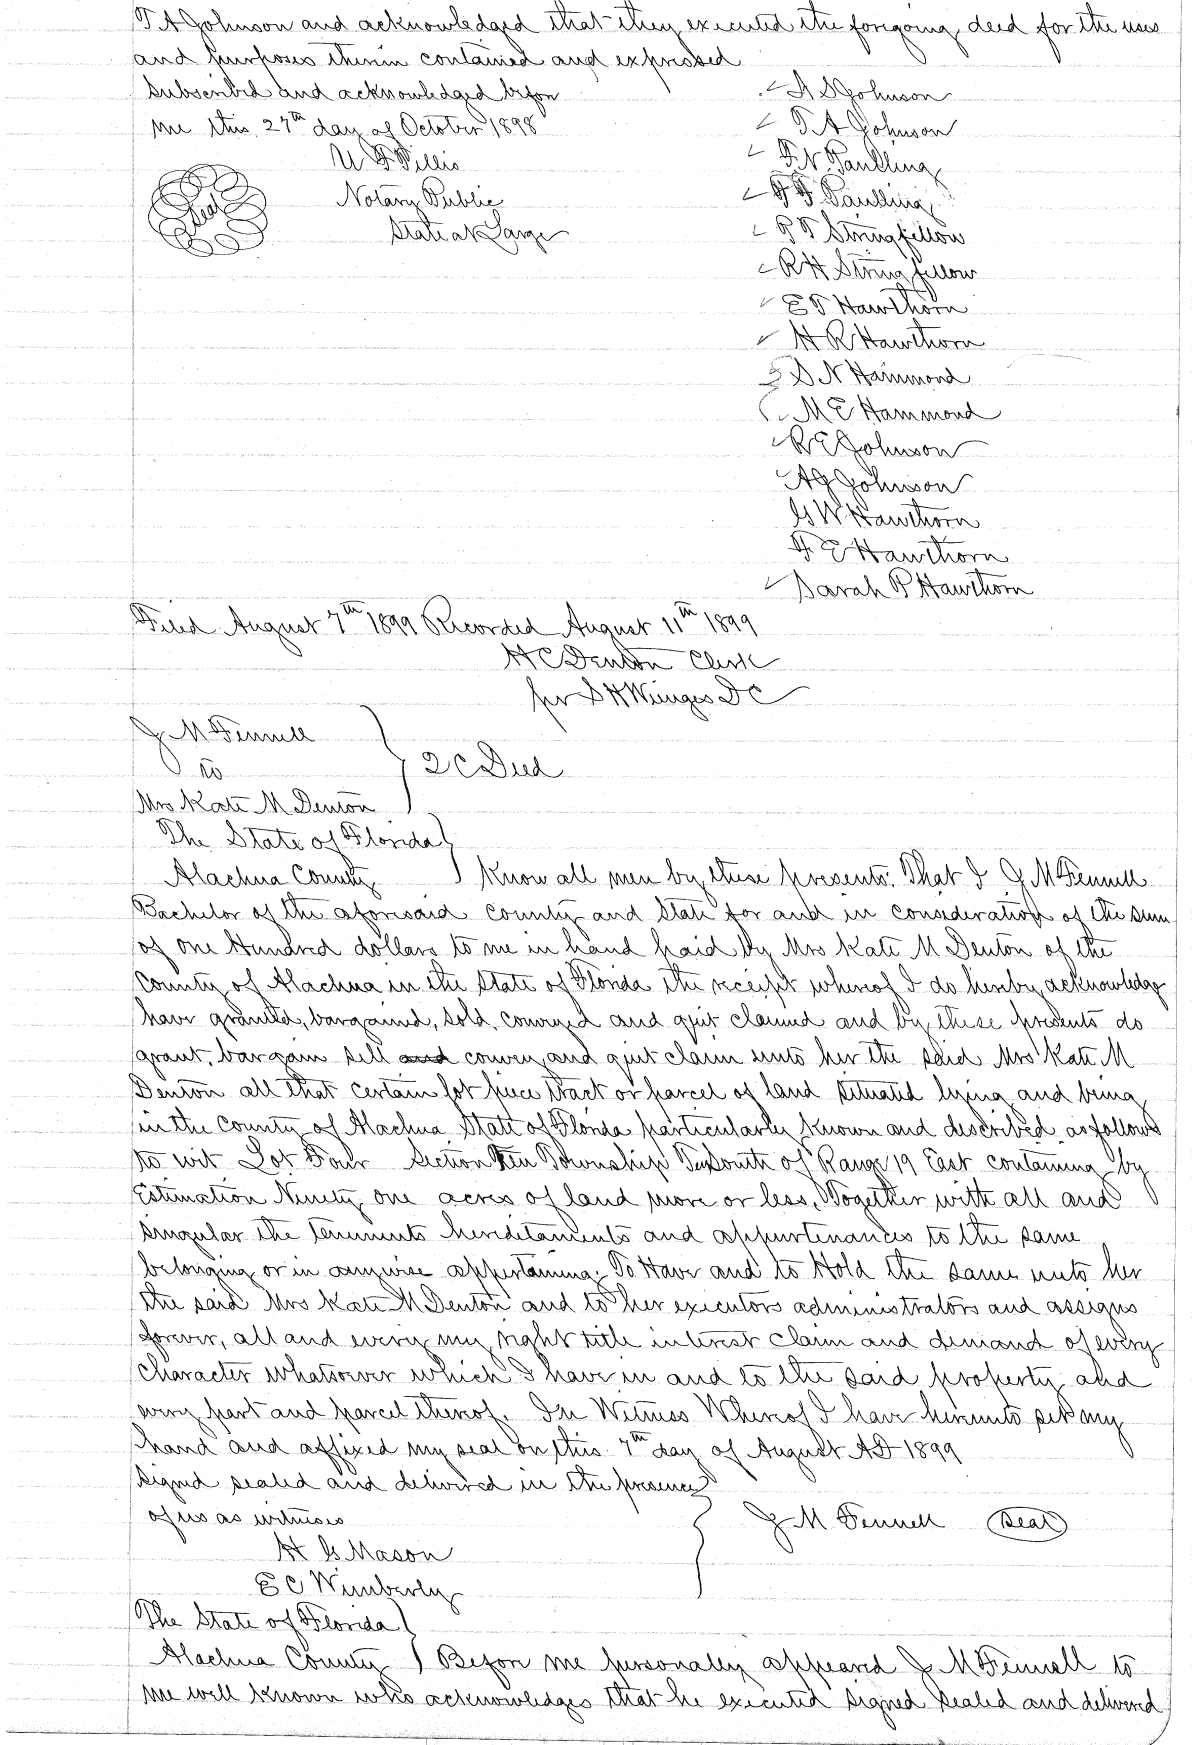 T A Johnson and acknowledged that they executed the foregoing deed for the uses
and purposes therein contained and expressed
Subscribed and acknowledged before
me this 27th day of October 1898
A S Johnson
T A Johnson
U F Pillis
F. N. Paulling
Seal
Notary Public
F F Paulling
State at Large
P T Stringfellow
R H Stringfellow
E T Hawthorn
H R Hawthorn
D N Hammond
M E Hammond
R E Johnson
A G Johnson
G W Hawthorn
F. E Hawthorn
Sarah P Hawthorn
Filed August 7th 1899 Recorded August 11th 1899
H C Denton Clerk
per S H Wienges D C
J M Fennell
to
2 C Deed
Mrs Kate M Denton
The State of Florida
Alachua County Know all men by these presents. That I J M Fennell
Bachelor of the aforesaid County and State for and in consideration of the sum
of one Hundred dollars to me in hand paid by Mrs Kate M Denton of the
County of Alachua in the State of Florida the receipt whereof I do hereby acknowledge
have granted, bargained, sold, conveyed and quit claimed and by these presents do
grant, bargain sell and convey and quit claim unto her the said Mrs Kate M
Denton all that certain lot piece tract or parcel of land situated lying and being
in the County of Alachua State of Florida particularly known and described as follows
to wit Lot Four Section Ten Township Ten South of Range 19 East containing by
Estimation Ninety one acres of land more or less, Together with all and
singular the tenements hereditaments and appurtenances to the same
belonging or in anywise appertaining. To Have and to Hold the same unto her
the said Mrs Kate M Denton and to her executors administrators and assigns
forever, all and every my right title interest claim and demand of every
character whatsoever which I have in and to the said property and
every part and parcel thereof. In Witness Whereof I have hereunto set my
hand and affixed my seal on this 7th day of August A D 1899
Signed sealed and delivered in the presence
of us as witnesses
J M Fennell Seal
H G Mason
E C Wimberly
The State of Florida
Alachua County Before me personally appeared J M Fennell to
me well known who acknowledges that he executed signed sealed and delivered